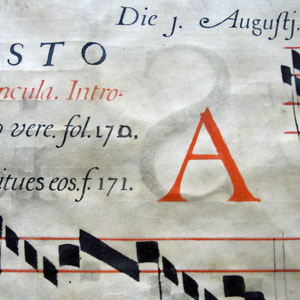 Die 1. Augustj.
STO
ncula. Intro-
o vere. fol. 170.
A
itues eos. f. 171.